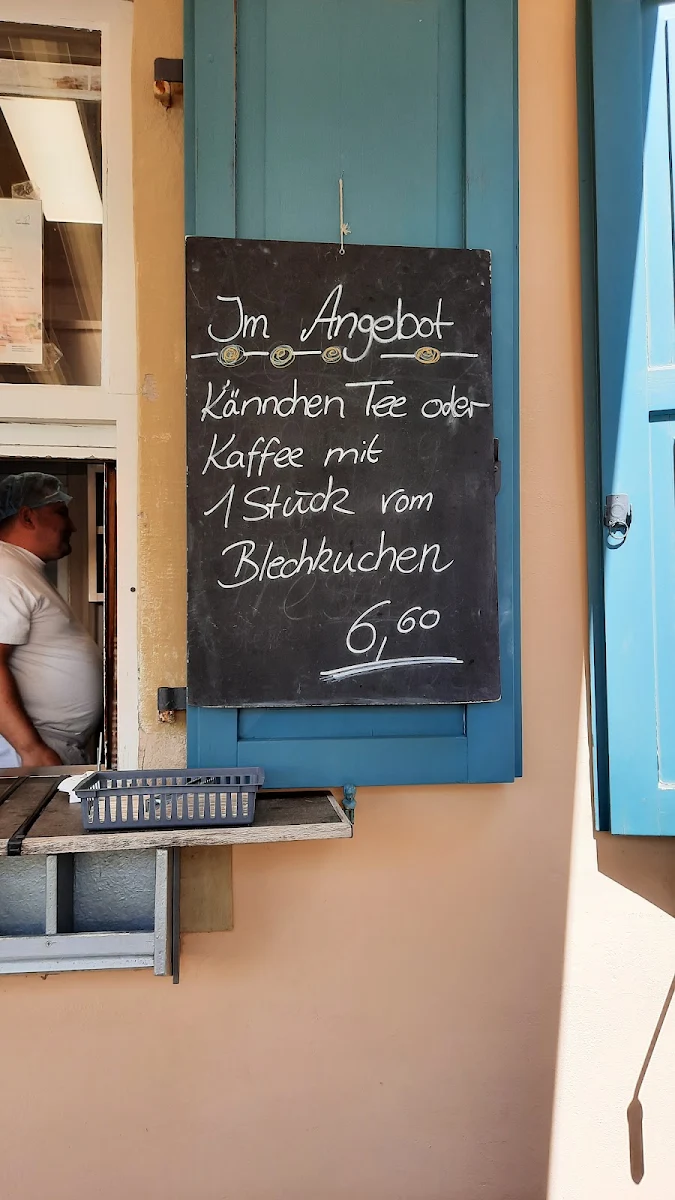 Im Angebot
Kännchen Tee oder
Kaffee mit
1 Stück vom
Blechkuchen
6,60